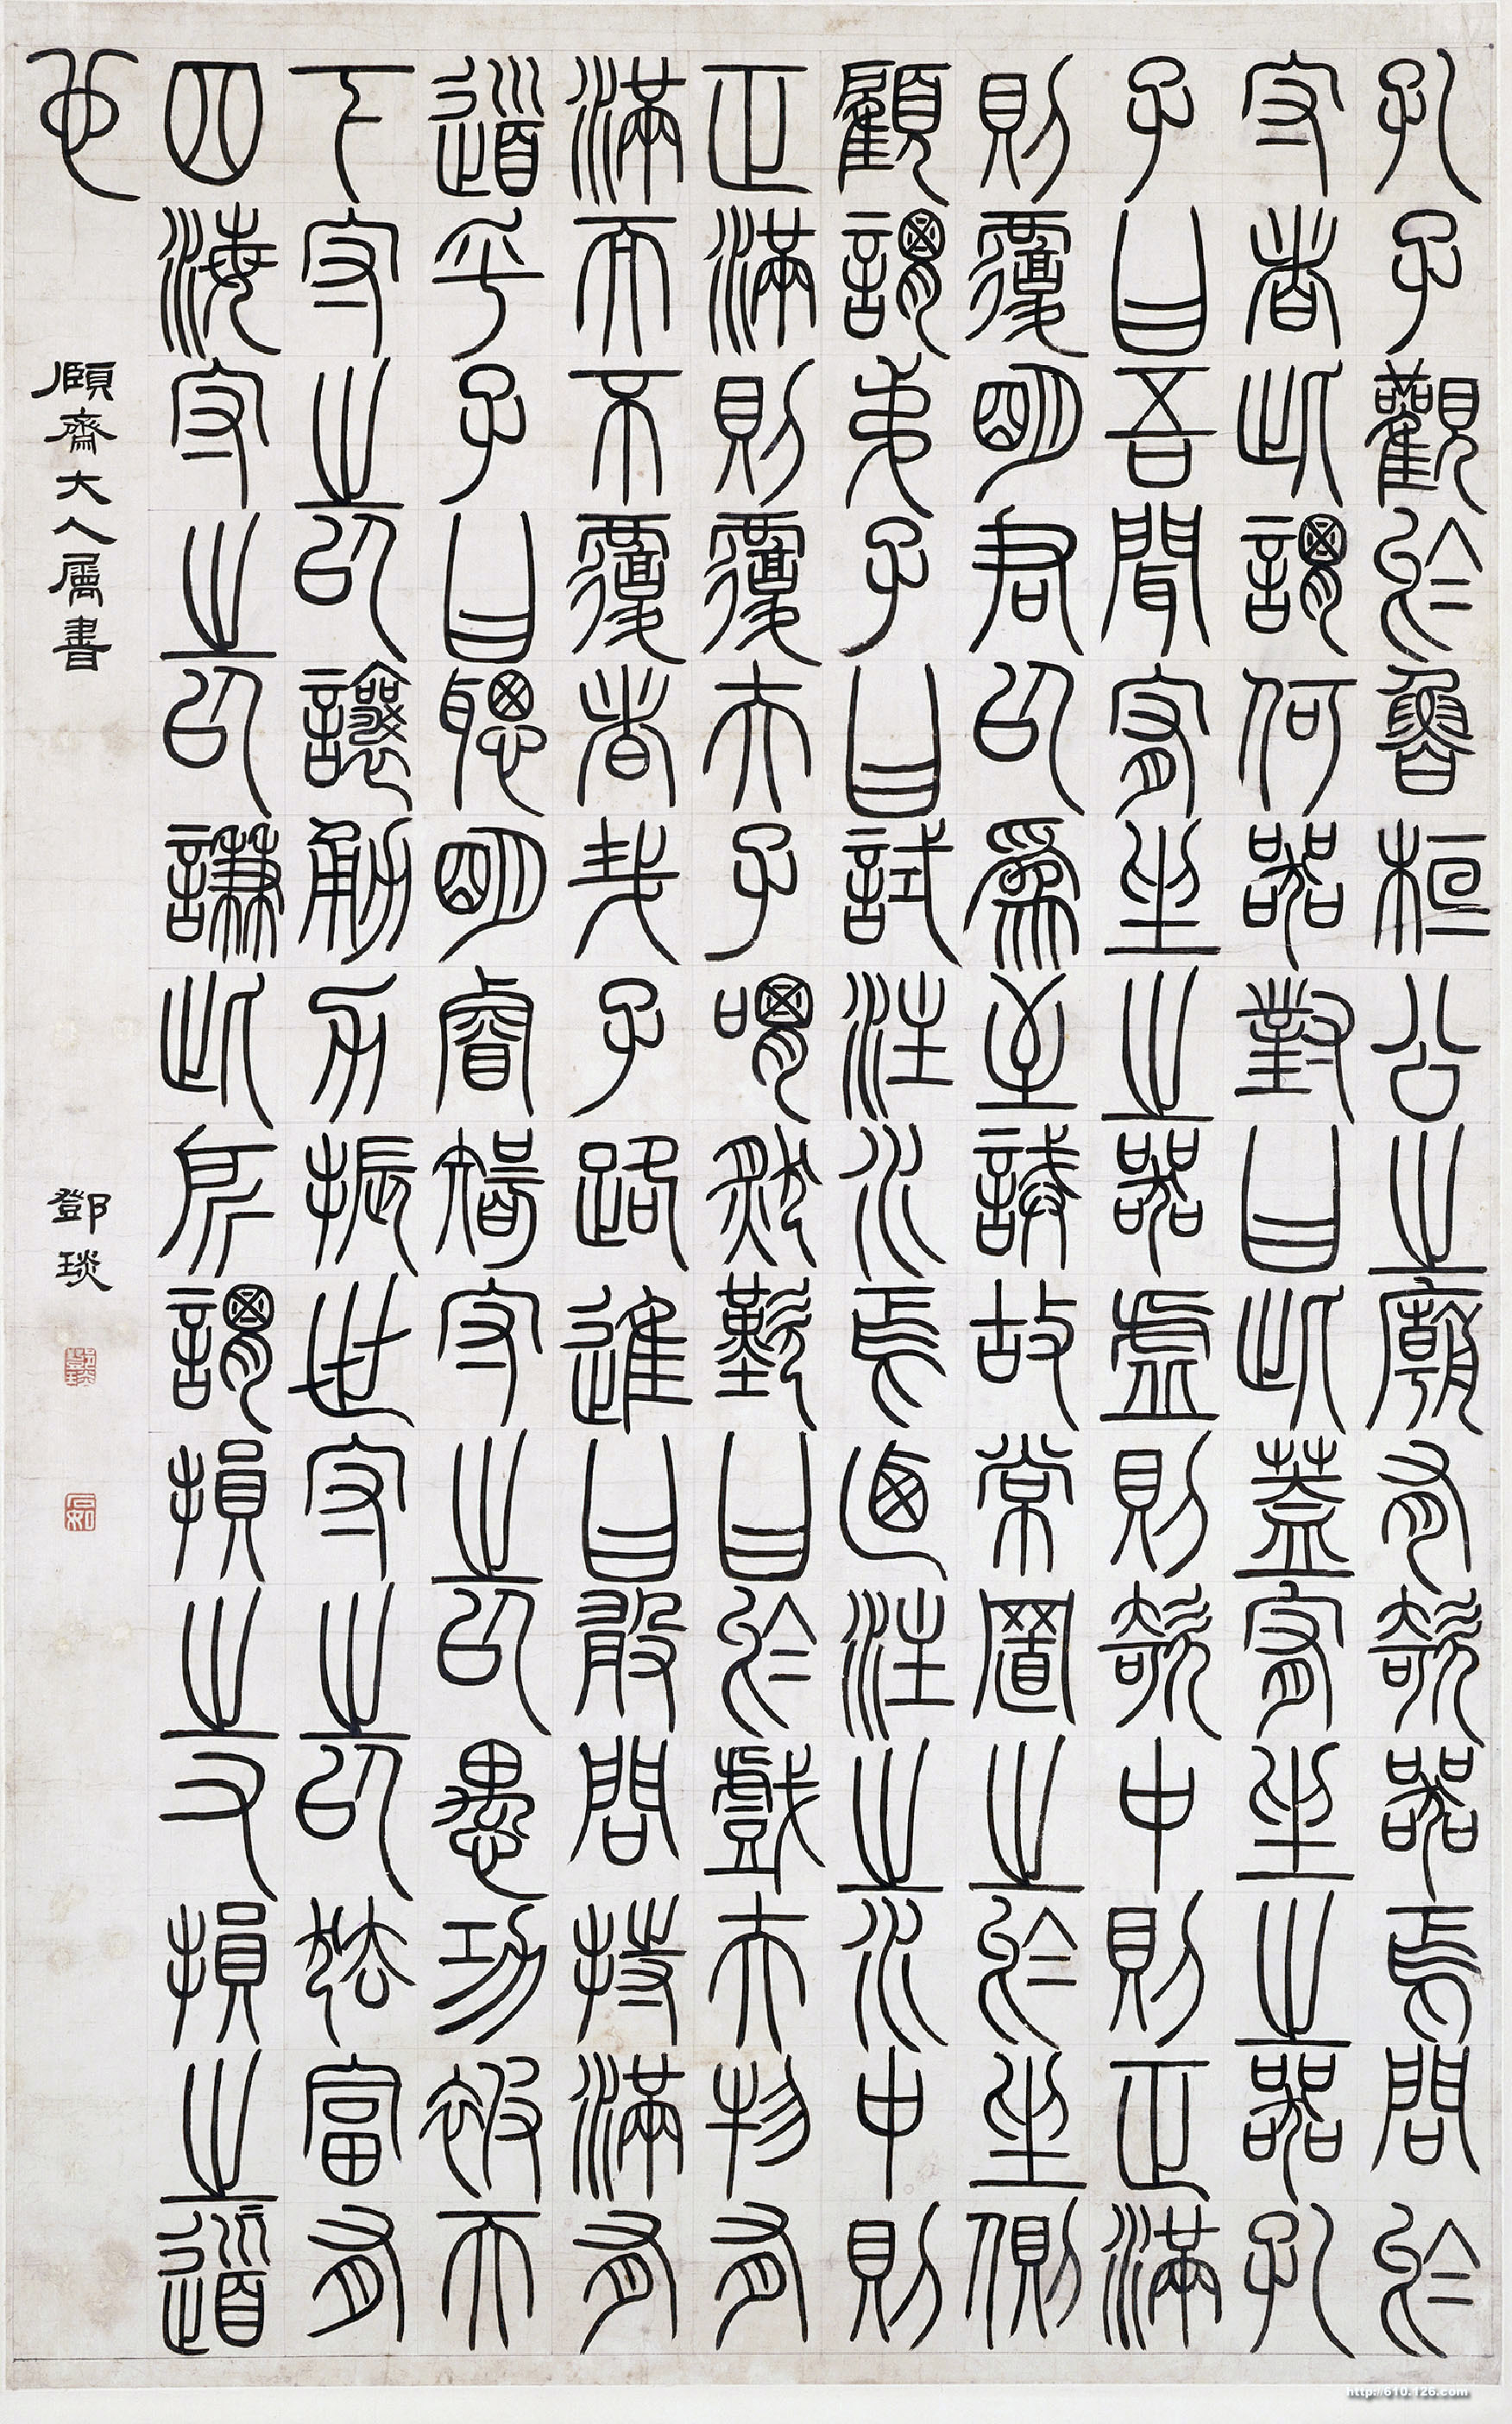 孔子觀於魯桓公之廟有欹器焉問於
守者此謂何器對曰此蓋宥坐之器孔
子曰吾聞宥坐之器虛則欹中則正滿
則覆明君以為至誠故常置之於坐側
顧謂弟子曰試注水焉迺注之水中則
正滿則覆夫子喟然歎曰於戲夫物有
滿而不覆者哉子路進曰敢問持滿有
道乎子曰聰明睿智守之以愚功被天
下守之以讓勇力振世守之以怯富有
四海守之以謙此所謂損之又損之道
也
頤齋大人屬書
鄧琰
鄧琰
石如
http://610.126.com